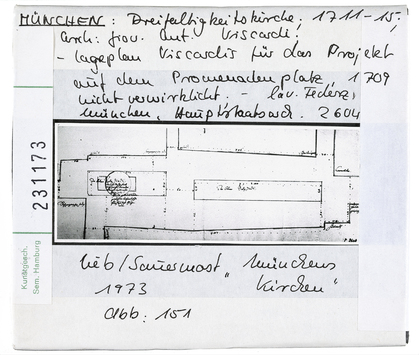 MÜNCHEN: Dreifaltigkeitskirche, 1711-15,
Arch: Giov. Ant. Viscardi.
- Lageplan Viscardis für das Projekt
auf dem Promenadenplatz, 1709
nicht verwirklicht. - lav. Federz,
München, Hauptstaatsarch. 2604
231173
Kunstgesch.
Sem. Hamburg
Lieb/Sauermost "Münchens
1973 Kirchen"
Abb: 151